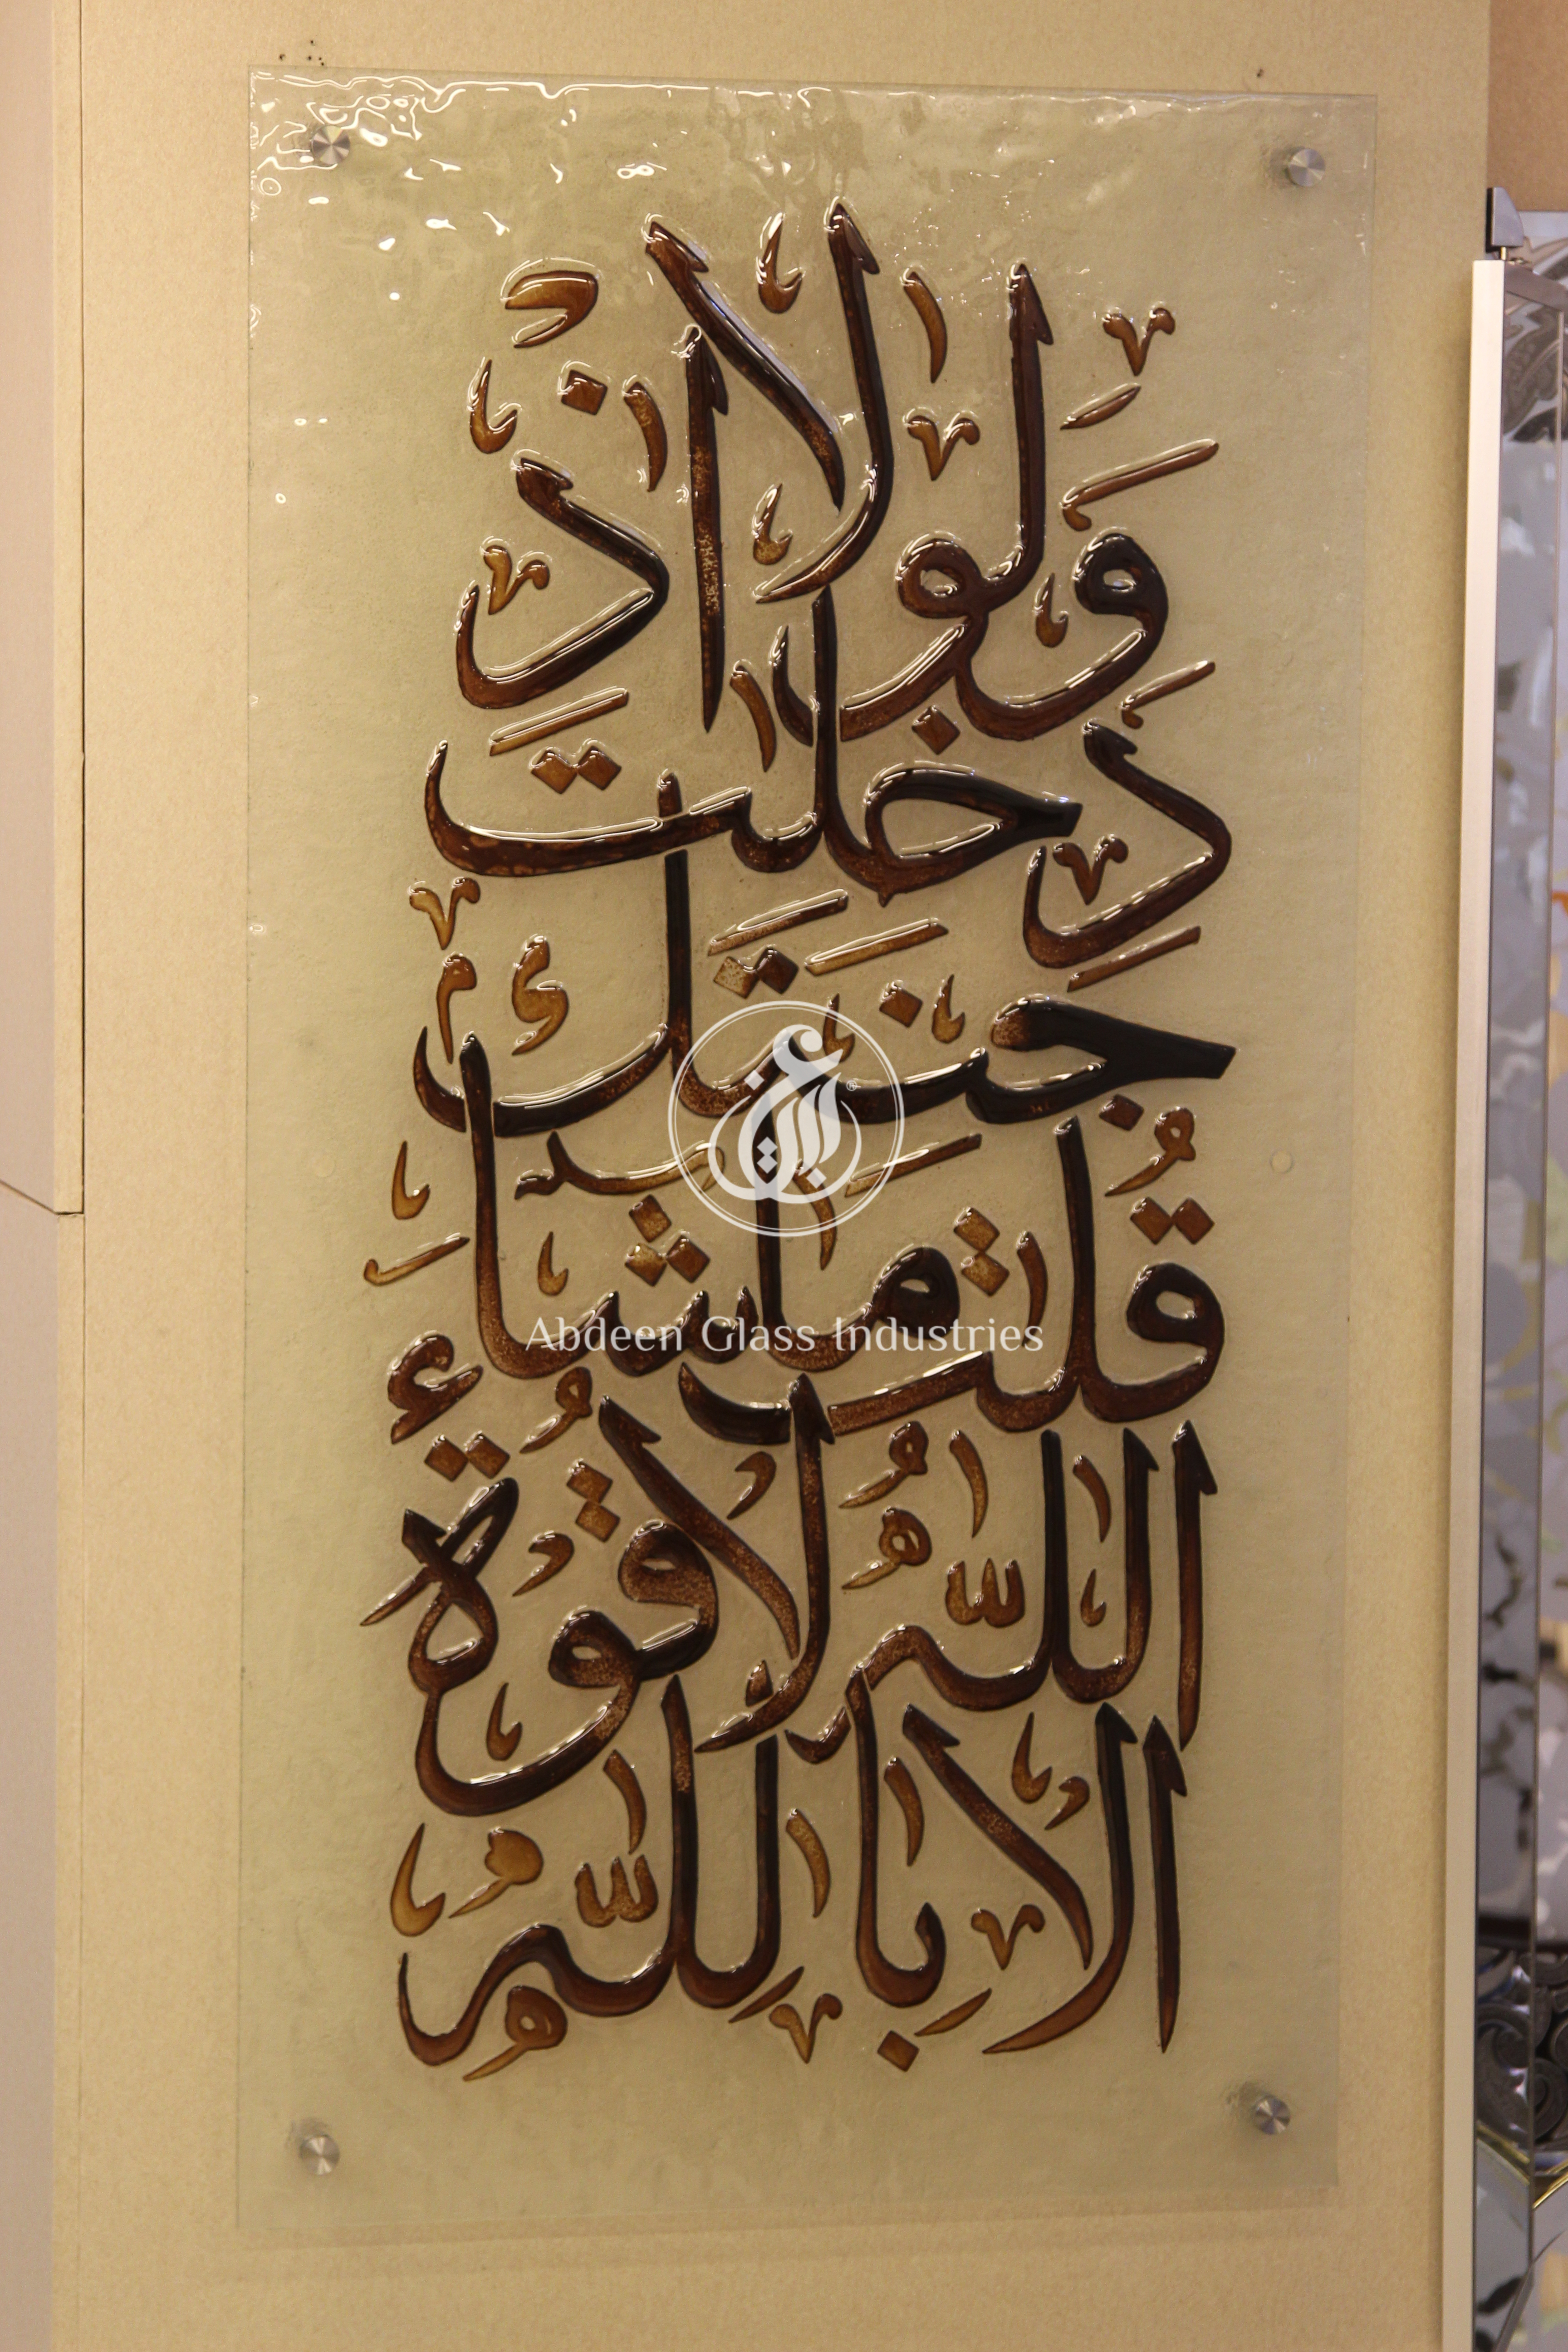 وَلَوْلَا إِذْ
دَخَلْتَ
جَنَّتَكَ
قُلْتَ مَا شَاءَ
اللَّهُ لَا قُوَّةَ
إِلَّا بِاللَّهِ
Abdeen Glass Industries